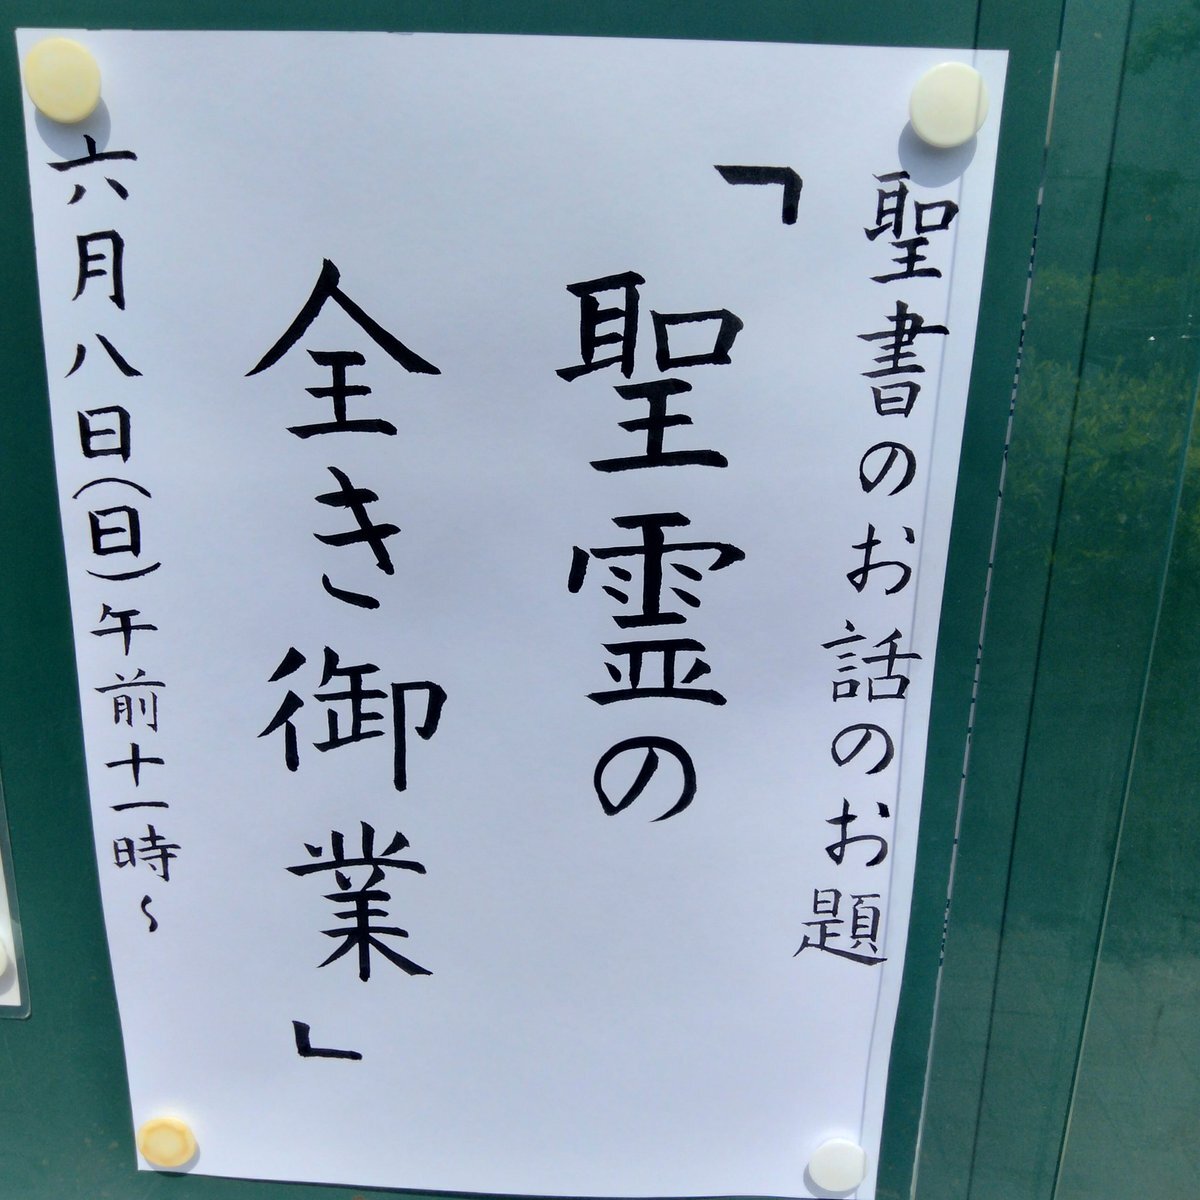 聖書のお話のお題
「聖霊の
全き御業」
六月八日(日)午前十一時~